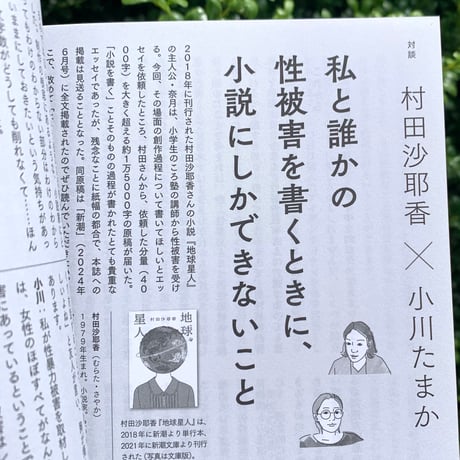 対談
村田沙耶香×小川たまか
私と誰かの
性被害を書くときに、
小説にしかできないこと
2018年に刊行された村田沙耶香さんの小説『地球星人』
の主人公・奈月は、小学生のころ塾の講師から性被害を受け
る。今回、その場面の創作過程について書いてほしいとエッ
セイを依頼したところ、村田さんから、依頼した分量(40
00字)を大きく超える約1万5000字の原稿が届いた。
「小説を書く」ことそのものの過程が書かれたとても貴重な
エッセイであったが、残念なことに紙幅の都合で、本誌への
掲載は見送ることとなった。同原稿は「新潮」(2024年
6月号)に全文掲載されたのでぜひ読んでいただきたい。
村田沙耶香
地球
星人
村田沙耶香(むらた・さやか)
1979年生まれ。小説家。
村田沙耶香『地球星人』は、
2018年に新潮より単行本、
2021年に新潮文庫より刊行
された(写真は文庫版)。
小川:私が性暴力被害を取材し
は、女性のほぼすべてがなん
害にあっているということで